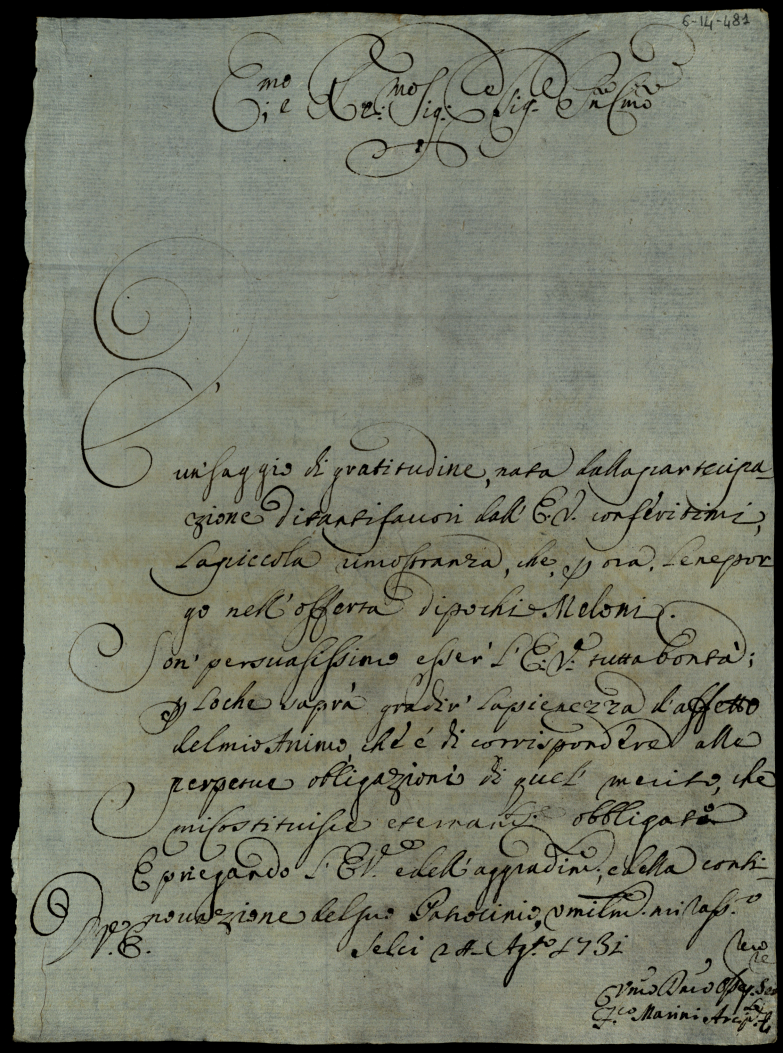 6-14-481
Emo; e Rmo: Sig: e Sig: Pne Cmo
E un' saggio di gratitudine, nata dalla partecipa-
zione di tanti favori dall' E. V. conferitimi,
la piccola rimostranza, che, p ora, le ne por-
go nell' offerta di pochi Meloni.
Son' persuasissimo esser' l' E: V.a tutta bontà;
p loche saprà gradir' la pienezza d' affetto
del mio Animo, ch' è di corrispondere alle
perpetue obligazioni di quel' merito, che
mi costituisce eternam.te obbligato
E priegando l' E V.a e dell' aggradim.to, e della conti-
novazione del suo Patrocinio, umilm. mi rass.o
D. V. E. Selci 24 Agto 1731
Umo Dmo Ser.re
Marini Arcip.te